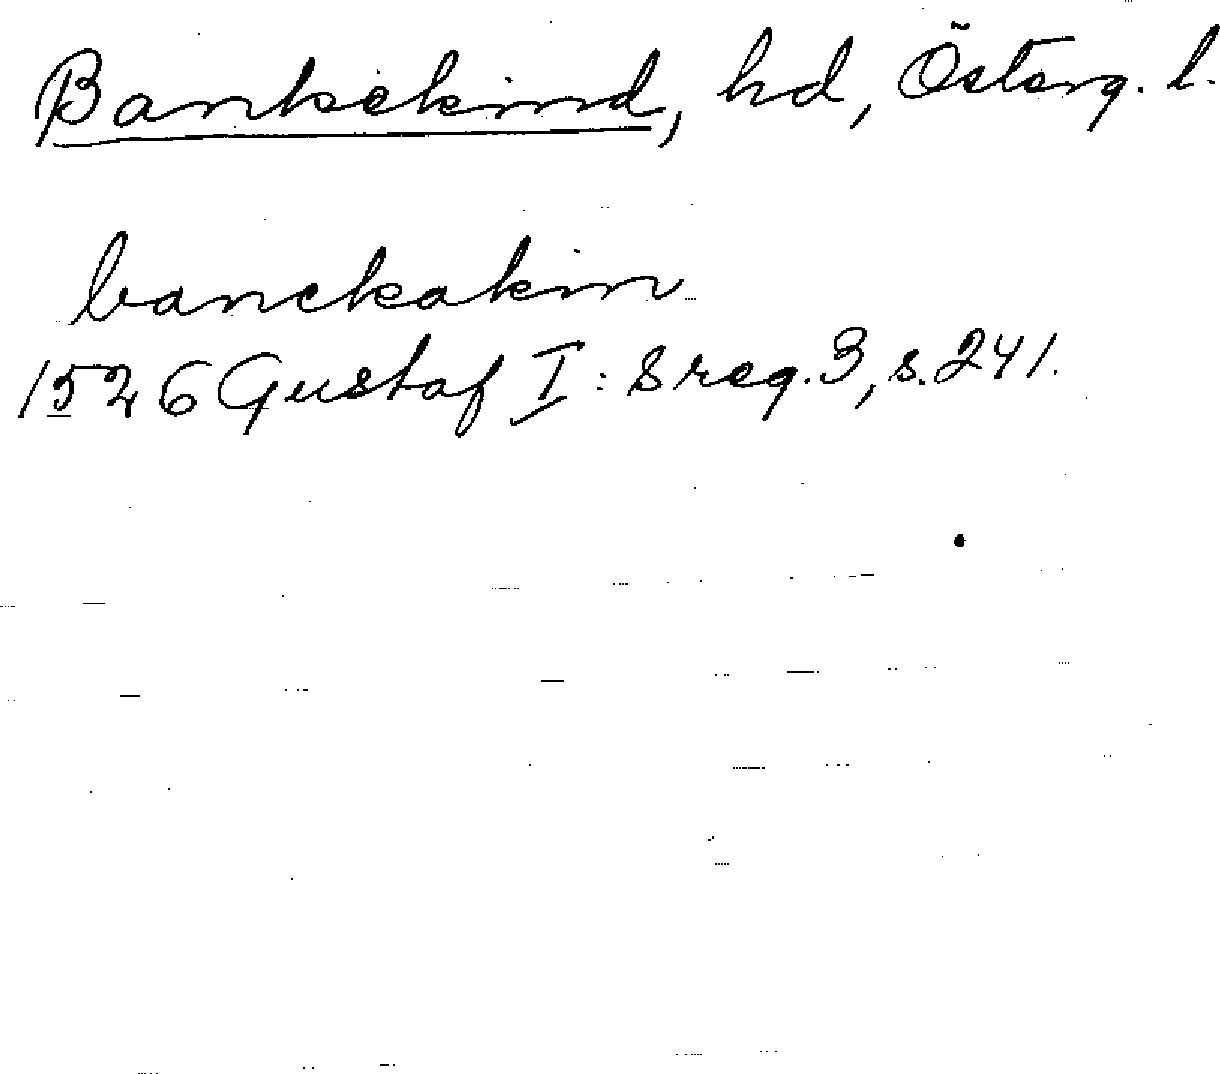 Bankekind, hd, Österg. l.
banckakin
1526 Gustaf I:s reg. 3, s. 241.